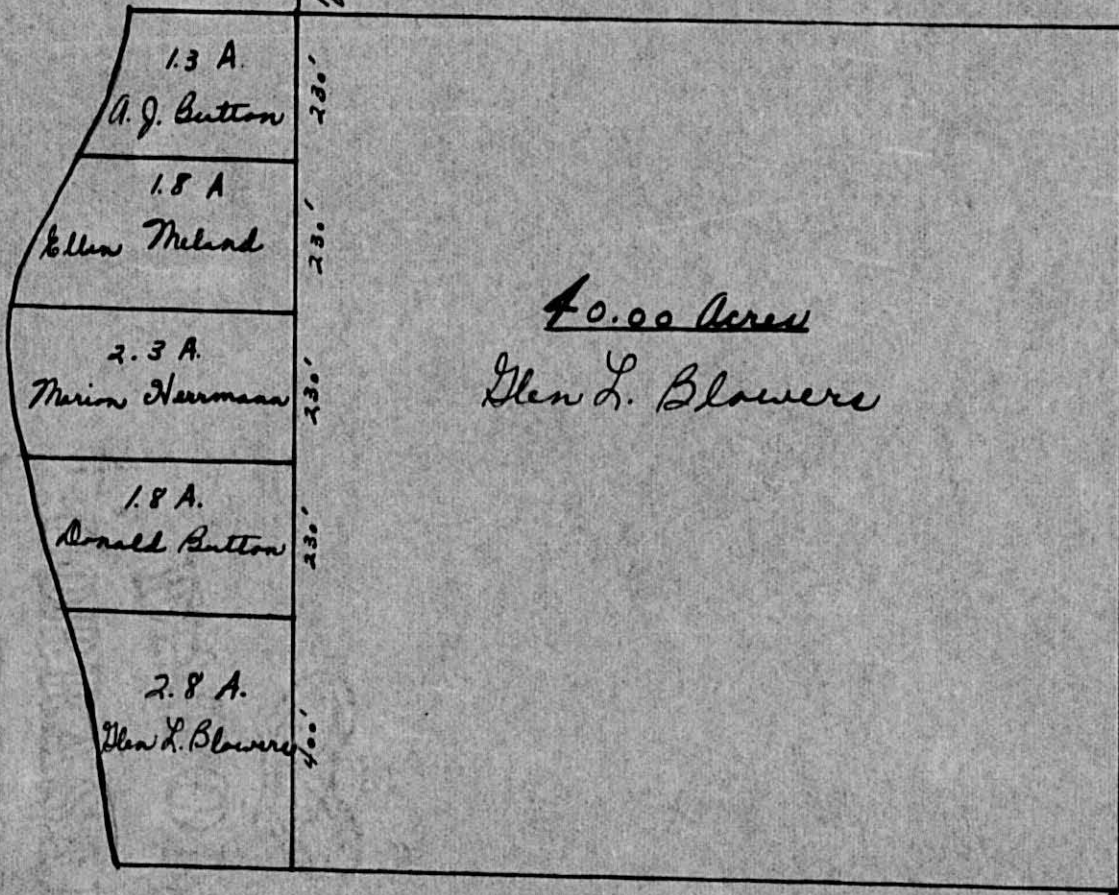 1.3 A.
A. J. Button
230'
1.8 A
Ellen Meland
230'
2.3 A.
Marion Herrmann
230'
1.8 A.
Donald Button
230'
2.8 A.
Glen L. Blowers
400'
40.00 Acres
Glen L. Blowers